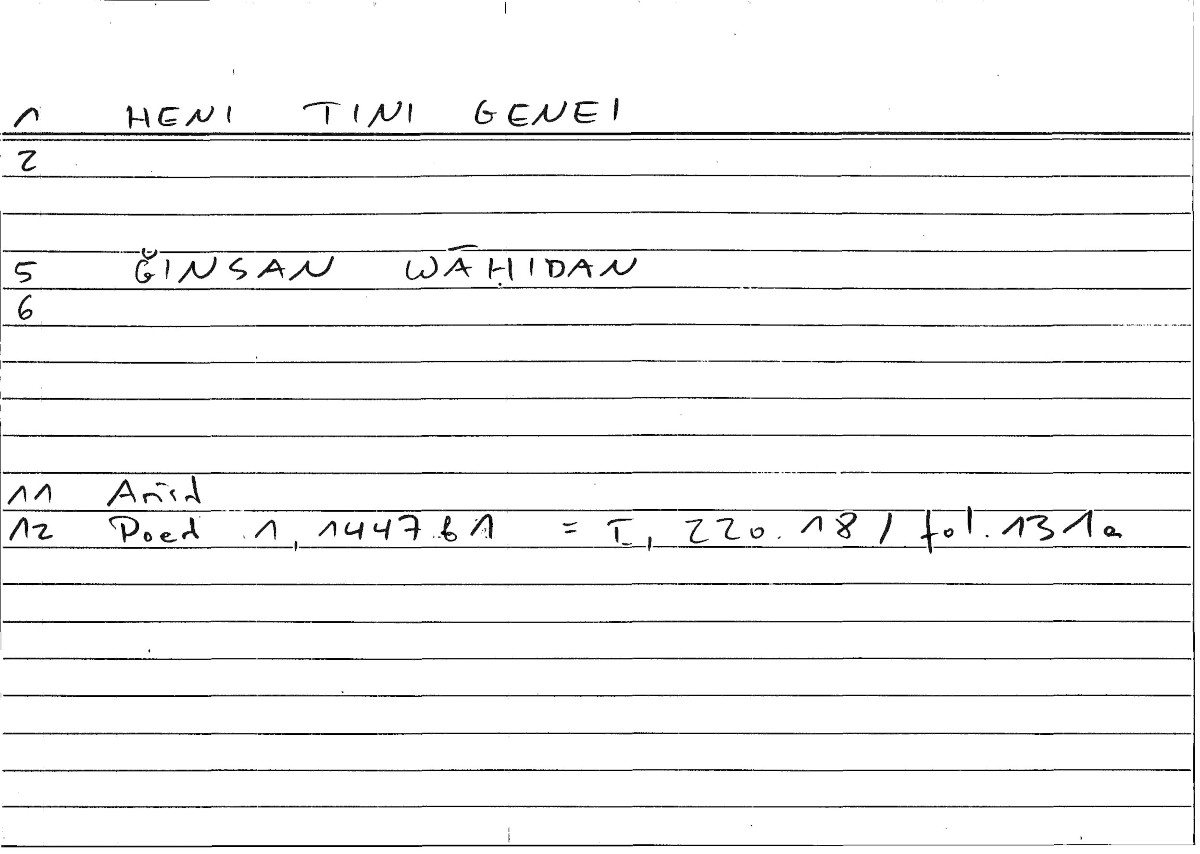 1 HENI TINI GENEI
2
5 ǦINSAN WĀḤIDAN
6
11 Arist
12 Poet 1, 1447 b 1 = I, 220.18 / fol. 131a